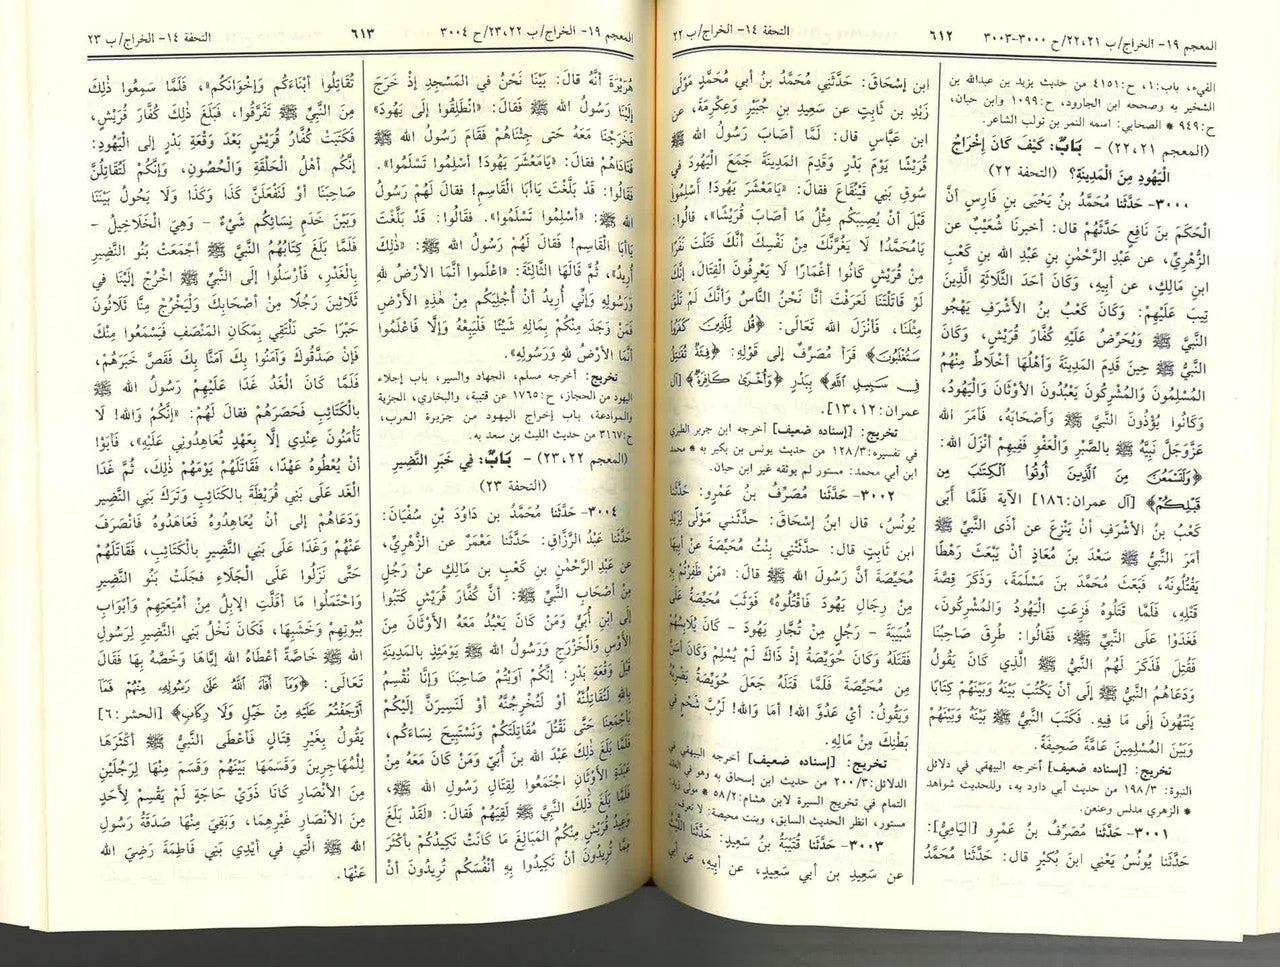 المعجم ١٩- الخراج/ب ٢٢،٢١/ح ٣٠٠٠-٣٠٠٣
٦١٢
التحفة ١٤- الخراج/ب ٢٢
الفيء، باب:١، ح:٤١٥١ من حديث يزيد بن عبدالله بن
الشخير به وصححه ابن الجارود، ح:١٠٩٩ وابن حبان،
ح:٩٤٩ * الصحابي: اسمه النمر بن تولب الشاعر.
(المعجم ٢٢،٢١) - بَابٌ: كَيْفَ كَانَ إِخْرَاجُ
الْيَهُودِ مِنَ الْمَدِينَةِ؟ (التحفة ٢٢)
٣٠٠٠- حَدَّثَنا مُحَمَّدُ بنُ يَحْيَى بنِ فَارِسٍ أنَّ
الْحَكَمَ بنَ نَافِعٍ حَدَّثَهُمْ قال: أخبرنَا شُعَيْبٌ عن
الزُّهْرِيِّ، عن عَبْدِ الرَّحْمٰنِ بنِ عَبْدِ الله بنِ كَعْبِ
ابنِ مَالِكٍ، عن أبِيهِ، وَكَانَ أحَدَ الثَّلَاثَةِ الَّذِينَ
تِيبَ عَلَيْهِمْ: وَكَانَ كَعْبُ بنُ الأشْرَفِ يَهْجُو
النَّبيَّ ﷺ وَيُحَرِّضُ عَلَيْهِ كُفَّارَ قُرَيْشٍ، وَكَانَ
النَّبيُّ ﷺ حِينَ قَدِمَ المَدِينَةَ وَأهْلُهَا أخْلَاطٌ مِنْهُمُ
المُسْلِمُونَ وَالمُشْرِكُونَ يَعْبُدُونَ الأوْثَانَ وَالْيَهُودَ،
وَكَانُوا يُؤْذُونَ النَّبيَّ ﷺ وَأصْحَابَهُ، فَأمَرَ الله
عَزَّوَجَلَّ نَبِيَّهُ ﷺ بالصَّبْرِ وَالْعَفْوِ فَفِيهِمْ أنْزَلَ الله:
﴿وَلَتَسْمَعُنَّ مِنَ الَّذِينَ أُوتُوا الْكِتَابَ مِن
قَبْلِكُمْ﴾ [آل عمران:١٨٦] الآية فَلَمَّا أبَى
كَعْبُ بنُ الأشْرَفِ أنْ يَنْزِعَ عن أذَى النَّبيِّ ﷺ
أمَرَ النَّبيُّ ﷺ سَعْدَ بنَ مُعَاذٍ أنْ يَبْعَثَ رَهْطًا
يَقْتُلُونَهُ، فَبَعَثَ مُحَمَّدَ بنَ مَسْلَمَةَ، وَذَكَرَ قِصَّةَ
قَتْلِهِ، فَلَمَّا قَتَلُوهُ فَزِعَتِ الْيَهُودُ وَالمُشْرِكُونَ،
فَغَدَوْا عَلَى النَّبيِّ ﷺ، فَقَالُوا: طُرِقَ صَاحِبُنَا
فَقُتِلَ فَذَكَرَ لَهُمُ النَّبيُّ ﷺ الَّذي كَانَ يَقُولُ
وَدَعَاهُمُ النَّبيُّ ﷺ إِلَى أنْ يَكْتُبَ بَيْنَهُ وَبَيْنَهُمْ كِتَابًا
يَنْتَهُونَ إِلَى مَا فِيهِ. فَكَتَبَ النَّبيُّ ﷺ بَيْنَهُ وَبَيْنَهُمْ
وَبَيْنَ المُسْلِمينَ عَامَّةً صَحِيفَةً.
تخريج: [إسناده ضعيف] أخرجه البيهقي في دلائل
النبوة: ١٩٨/٣ من حديث أبي داود به، وللحديث شواهد
* الزهري مدلس وعنعن.
٣٠٠١- حَدَّثَنا مُصَرِّفُ بنُ عَمْرٍو [اليَامِيُّ]:
حَدَّثَنا يُونُسُ يَعْني ابنَ بُكَيْرٍ قال: حَدَّثَنا مُحَمَّدُ
ابن إسْحَاقَ: حَدَّثَنِي مُحَمَّدُ بنُ أبي مُحَمَّدٍ مَوْلَى
زَيْدِ بن ثَابِتٍ عن سَعِيدِ بنِ جُبَيْرٍ وَعِكْرِمَةَ، عن
ابنِ عَبَّاسٍ قال: لَمَّا أصَابَ رَسُولُ الله ﷺ
قُرَيْشًا يَوْمَ بَدْرٍ وَقَدِمَ المَدِينَةَ جَمَعَ الْيَهُودَ في
سُوقِ بَني قَيْنُقَاعَ فقالَ: «يَامَعْشَرَ يَهُودَ! أسْلِمُوا
قَبْلَ أنْ يُصِيبَكُم مِثْلُ مَا أصَابَ قُرَيْشًا»، قالُوا:
يَامُحَمَّدُ! لَا يَغُرَّنَّكَ مِنْ نَفْسِكَ أنَّكَ قَتَلْتَ نَفَرًا
مِنْ قُرَيْشٍ كَانُوا أغْمَارًا لَا يَعْرِفُونَ الْقِتَالَ، إنَّكَ
لَوْ قَاتَلْتَنَا لَعَرَفْتَ أنَّا نَحْنُ النَّاسُ وَأنَّكَ لَمْ تَلْقَ
مِثْلَنَا، فَأنْزَلَ الله تَعَالَى: ﴿قُل لِّلَّذِينَ كَفَرُوا
سَتُغْلَبُونَ﴾ قَرَأ مُصَرِّفٌ إِلى قَوْلِهِ: ﴿فِئَةٌ تُقَاتِلُ
فِي سَبِيلِ اللَّهِ﴾ بِبَدْرٍ ﴿وَأُخْرَىٰ كَافِرَةٌ﴾ [آل
عمران:١٣،١٢].
تخريج: [إسناده ضعيف] أخرجه ابن جرير الطبري
في تفسيره: ١٢٨/٣ من حديث يونس بن بكير به * محمد
ابن أبي محمد: مستور لم يوثقه غير ابن حبان.
٣٠٠٢- حَدَّثَنا مُصَرِّفُ بنُ عَمْرٍو: حَدَّثَنا
يُونُسُ، قال ابنُ إسْحَاقَ: حَدَّثَني مَوْلًى لِزَيْدِ
ابن ثَابِتٍ قال: حَدَّثَتْنِي بِنْتُ مُحَيِّصَةَ عن أبِيهَا
مُحَيِّصَةَ أنَّ رَسُولَ الله ﷺ قالَ: «مَنْ ظَفِرْتُمْ بِهِ
مِنْ رِجَالِ يَهُودَ فَاقْتُلُوهُ» فَوَثَبَ مُحَيِّصَةُ عَلَى
شَبِيبَةَ - رَجُلٍ مِنْ تُجَّارِ يَهُودَ - كَانَ يُلَابِسُهُمْ
فَقَتَلَهُ وَكَانَ حُوَيِّصَةُ إذْ ذَاكَ لَمْ يُسْلِمْ وَكَانَ أسَنَّ
مِن مُحَيِّصَةَ فَلَمَّا قَتَلَهُ جَعَلَ حُوَيِّصَةُ يَضْرِبُهُ
وَيَقُولُ: أيْ عَدُوَّ الله! أمَا وَالله! لَرُبَّ شَحْمٍ في
بَطْنِكَ مِنْ مَالِهِ.
تخريج: [إسناده ضعيف] أخرجه البيهقي في
الدلائل:٢٠٠/٣ من حديث ابن إسحاق به وهو في
التمام في تخريج السيرة لابن هشام:٥٨/٢ * مولى زيد:
مستور، انظر الحديث السابق، وبنت محيصة: لا تعرف.
٣٠٠٣- حَدَّثَنا قُتَيْبَةُ بنُ سَعِيدٍ: حَدَّثَنَا اللَّيْثُ
عن سَعِيدِ بن أبي سَعِيدٍ، عن أبِيهِ، عن أبي
المعجم ١٩- الخراج/ب ٢٣،٢٢/ح ٣٠٠٤
٦١٣
التحفة ١٤- الخراج/ب ٢٣
هُرَيْرَةَ أنَّهُ قالَ: بَيْنَا نَحْنُ في المَسْجِدِ إذْ خَرَجَ
إلَيْنَا رَسُولُ الله ﷺ فَقالَ: «انْطَلِقُوا إِلَى يَهُودَ»
فَخَرَجْنَا مَعَهُ حَتى جِئْنَاهُمْ فَقَامَ رَسُولُ الله ﷺ
فَنَادَاهُمْ فقالَ: «يَامَعْشَرَ يَهُودَ! أسْلِمُوا تَسْلَمُوا».
فَقالُوا: قَدْ بَلَّغْتَ يَاأبَا الْقَاسِمِ! فقالَ لَهُمْ رَسُولُ
الله ﷺ: «أسْلِمُوا تَسْلَمُوا». فَقالُوا: قَدْ بَلَّغْتَ
يَاأبَا الْقَاسِمِ! فَقالَ لَهُمْ رَسُولُ الله ﷺ: «ذٰلِكَ
أُرِيدُ»، ثُمَّ قالَهَا الثَّالِثَةَ: «اعْلَمُوا أنَّمَا الأرْضُ لله
وَرَسُولِهِ وَإنِّي أُرِيدُ أنْ أُجْلِيَكُم مِنْ هٰذِهِ الأرْضِ
فَمَنْ وَجَدَ مِنْكُم بِمَالِهِ شَيْئًا فَلْيَبِعْهُ وَإلَّا فَاعْلَمُوا
أنَّمَا الأرْضُ لله وَرَسُولِهِ».
تخريج: أخرجه مسلم، الجهاد والسير، باب إجلاء
اليهود من الحجاز، ح:١٧٦٥ عن قتيبة، والبخاري، الجزية
والموادعة، باب إخراج اليهود من جزيرة العرب،
ح:٣١٦٧ من حديث الليث بن سعد به.
(المعجم ٢٣،٢٢) - بَابٌ: في خَبَرِ النَّضِيرِ
(التحفة ٢٣)
٣٠٠٤- حَدَّثَنا مُحَمَّدُ بن دَاوُدَ بْنِ سُفْيَانَ:
حَدَّثَنا عَبْدُ الرَّزَّاقِ: حَدَّثَنَا مَعْمَرٌ عن الزُّهْرِيِّ،
عن عَبْدِ الرَّحْمٰنِ بنِ كَعْبِ بن مَالِكٍ عن رَجُلٍ
مِنْ أصْحَابِ النَّبيِّ ﷺ: أنَّ كُفَّارَ قُرَيْشٍ كَتَبُوا
إِلَى ابْنِ أُبَيٍّ وَمَنْ كَانَ يَعْبُدُ مَعَهُ الأوْثَانَ مِنَ
الأوْسِ وَالْخَزْرَجِ وَرَسُولُ الله ﷺ يَوْمَئِذٍ بالمَدِينَةِ
قَبْلَ وَقْعَةِ بَدْرٍ: إنَّكُم آوَيْتُمْ صَاحِبَنَا وَإنَّا نُقْسِمُ
بالله لَتُقَاتِلُنَّهُ أوْ لَتُخْرِجُنَّهُ أوْ لَنَسِيرَنَّ إلَيْكُم
بِأجْمَعِنَا حَتَّى نَقْتُلَ مُقَاتِلَتَكُم وَنَسْتَبِيحَ نِسَاءَكُم،
فَلَمَّا بَلَغَ ذٰلِكَ عَبْدَ الله بنَ أُبَيٍّ وَمَنْ كَانَ مَعَهُ مِنْ
عَبَدَةِ الأوْثَانِ، اجْتَمَعُوا لِقِتَالِ رَسُولِ الله ﷺ،
فَلَمَّا بَلَغَ ذٰلِكَ النَّبيَّ ﷺ لَقِيَهُمْ فَقالَ: «لَقَدْ بَلَغَ
وَعِيدُ قُرَيْشٍ مِنْكُم المَبَالِغَ مَا كَانَتْ تَكِيدُكُم بِأكْثَرَ
مِمَّا تُرِيدُونَ أنْ تَكِيدُوا بِهِ أنْفُسَكُم تُرِيدُونَ أنْ
تُقَاتِلُوا أبْنَاءَكُم وَإخْوَانَكُم»، فَلَمَّا سَمِعُوا ذٰلِكَ
مِنَ النَّبيِّ ﷺ تَفَرَّقُوا، فَبَلَغَ ذٰلِكَ كُفَّارَ قُرَيْشٍ،
فَكَتَبَتْ كُفَّارُ قُرَيْشٍ بَعْدَ وَقْعَةِ بَدْرٍ إِلَى الْيَهُودِ:
إنَّكُم أهْلُ الْحَلْقَةِ وَالْحُصُونِ، وَإنَّكُم لَتُقَاتِلُنَّ
صَاحِبَنَا أوْ لَنَفْعَلَنَّ كَذَا وَكَذَا وَلَا يَحُولُ بَيْنَنَا
وَبَيْنَ خَدَمِ نِسَائِكُم شَيْءٌ - وَهِيَ الْخَلَاخِيلُ -
فَلَمَّا بَلَغَ كِتَابُهُمُ النَّبيَّ ﷺ أجْمَعَتْ بَنُو النَّضِيرِ
بِالْغَدْرِ، فَأرْسَلُوا إِلَى النَّبيِّ ﷺ اخْرُجْ إلَيْنَا في
ثَلَاثِينَ رَجُلًا مِنْ أصْحَابِكَ وَلْيَخْرُجْ مِنَّا ثَلَاثُونَ
حَبْرًا حَتى نَلْتَقِي بِمَكَانِ المَنْصَفِ فَيَسْمَعُوا مِنْكَ
فَإن صَدَّقُوكَ وَآمَنُوا بِكَ آمَنَّا بِكَ فَقَصَّ خَبَرَهُمْ،
فَلَمَّا كَانَ الْغَدُ غَدَا عَلَيْهِمْ رَسُولُ الله ﷺ
بالْكَتَائِبِ فَحَصَرَهُمْ فقالَ لَهُمْ: «إنَّكُمْ وَالله! لَا
تَأْمَنُونَ عِنْدِي إلَّا بِعَهْدٍ تُعَاهِدُونِي عَلَيْهِ»، فَأبَوْا
أنْ يُعْطُوهُ عَهْدًا، فَقَاتَلَهُمْ يَوْمَهُمْ ذٰلِكَ، ثُمَّ غَدَا
الْغَدَ عَلَى بَنِي قُرَيْظَةَ بالْكَتَائِبِ وَتَرَكَ بَنِي النَّضِيرِ
وَدَعَاهُمْ إِلى أنْ يُعَاهِدُوهُ فَعَاهَدُوهُ فَانْصَرَفَ
عَنْهُمْ وَغَدَا عَلَى بَنِي النَّضِيرِ بالْكَتَائِبِ، فَقَاتَلَهُمْ
حَتى نَزَلُوا عَلَى الْجَلَاءِ فَجَلَتْ بَنُو النَّضِيرِ
وَاحْتَمَلُوا مَا أقَلَّتِ الإبِلُ مِنْ أمْتِعَتِهِمْ وَأبْوَابِ
بُيُوتِهِمْ وَخَشَبِهَا، فَكَانَ نَخْلُ بَنِي النَّضِيرِ لِرَسُولِ
الله ﷺ خَاصَّةً أعْطَاهُ الله إيَّاهَا وَخَصَّهُ بهَا فَقَالَ
تَعَالَى: ﴿وَمَا أَفَاءَ اللَّهُ عَلَىٰ رَسُولِهِ مِنْهُمْ فَمَا
أَوْجَفْتُمْ عَلَيْهِ مِنْ خَيْلٍ وَلَا رِكَابٍ﴾ [الحشر:٦]
يَقُولُ بِغَيْرِ قِتَالٍ فَأعْطَى النَّبيُّ ﷺ أكْثَرَهَا
لِلْمُهَاجِرِينَ وَقَسَمَهَا بَيْنَهُمْ وَقَسَمَ مِنْهَا لِرَجُلَيْنِ
مِنَ الأنْصَارِ كَانَا ذَوَيْ حَاجَةٍ لَمْ يَقْسِمْ لِأحَدٍ
مِنَ الأنْصَارِ غَيْرِهِمَا، وَبَقِيَ مِنْهَا صَدَقَةُ رَسُولِ
الله ﷺ الَّتي في أيْدِي بَنِي فَاطِمَةَ رَضِيَ الله
عَنْهَا.